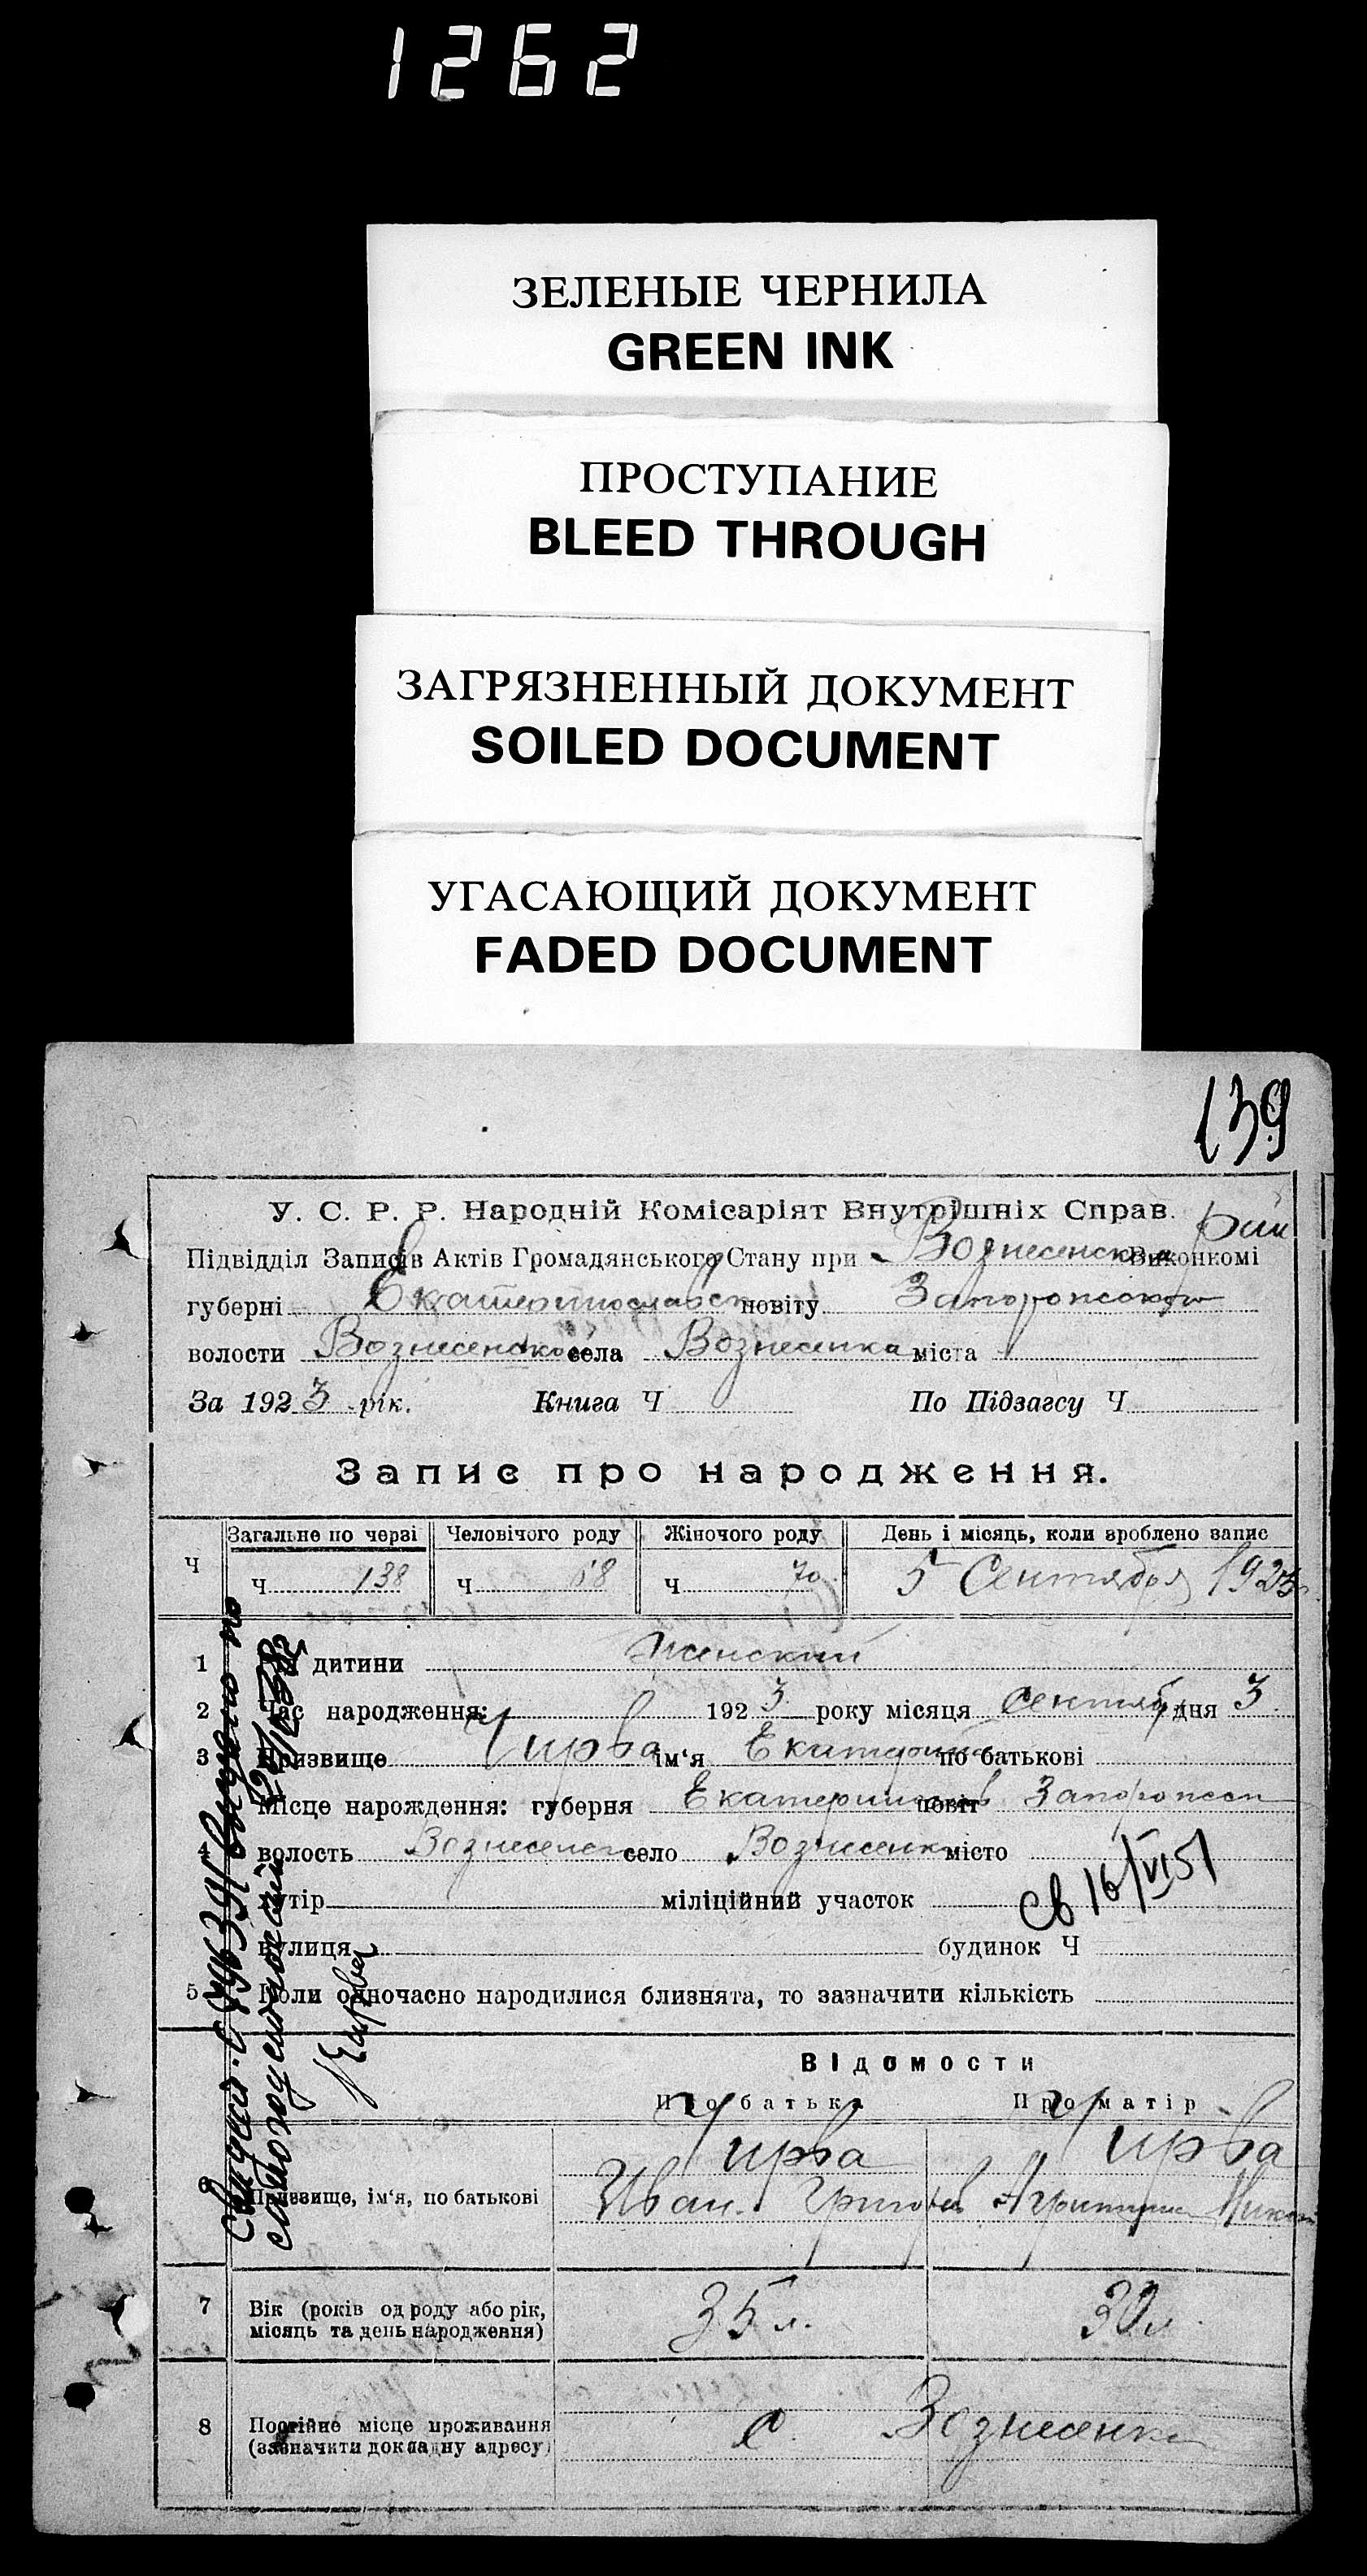 1262
ЗЕЛЕНЫЕ ЧЕРНИЛА
GREEN INK
ПРОСТУПАНИЕ
BLEED THROUGH
ЗАГРЯЗНЕННЫЙ ДОКУМЕНТ
SOILED DOCUMENT
УГАСАЮЩИЙ ДОКУМЕНТ
FADED DOCUMENT
139
У. С. Р. Р. Народній Комісаріят Внутрішніх Справ.
Підвідділ Записів Актів Громадянського Стану при Вознесенском Рай Виконкомі
губерні Екатеринославск повіту Запорожского
волости Вознесенской села Вознесенка міста
За 1923 рік. Книга Ч По Підзагсу Ч
Запис про народження.
Ч Загальне по черзі Человічого роду Жіночого роду День і місяць, коли зроблено запис
Ч 138 Ч 68 Ч 70 5 Сентября 1923 г.
1 Рід дитини Женский
2 Час народження: 1923 року місяця Сентяб дня 3
3 Призвище Чирва ім'я Екатерина по батькові
4 Місце народження: губерня Екатеринослав повіт Запорожск
волость Вознесенск село Вознесенка місто
хутір міліційний участок
вулиця будинок Ч
Св 16/VI 51
5 Коли одночасно народилися близнята, то зазначити кількість
Відомости
Про батька Про матір
6 Призвище, ім'я, по батькові Чирва Чирва
Иван Григорьев Агрипина
7 Вік (років од роду або рік, місяць та день народження) 35 л. 30 л
8 Постійне місце проживання (зазначити докладну адресу) с. Вознесенка